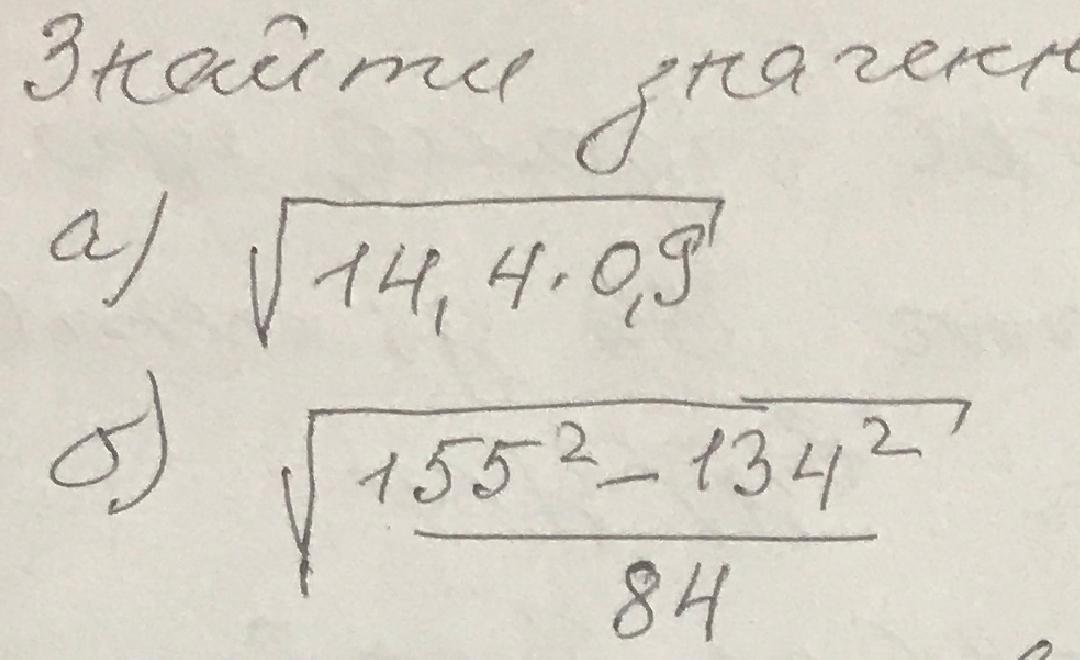 Знайти значен
а) √14,4·0,9
б) √155²-134²
84